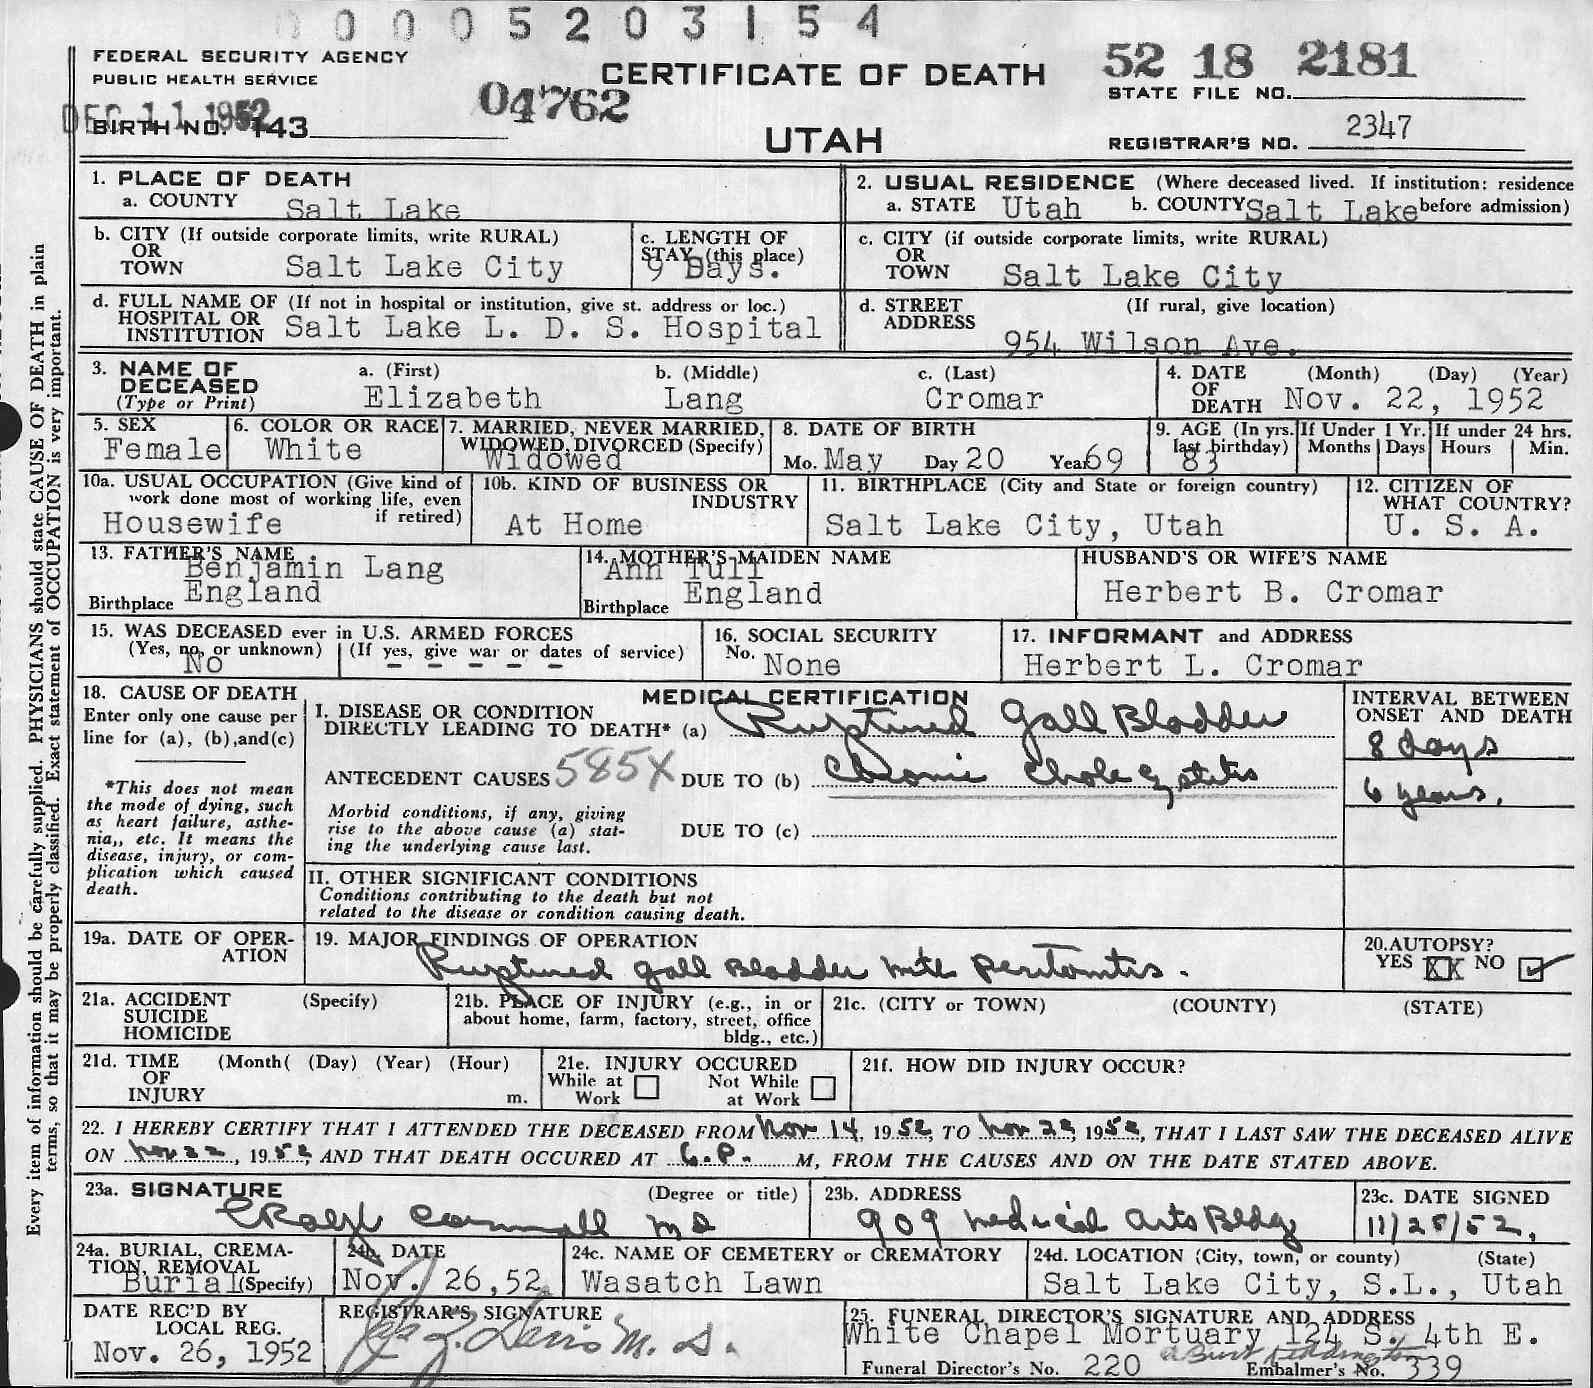 0 0 0 5 2 0 3 1 5 4
FEDERAL SECURITY AGENCY
PUBLIC HEALTH SERVICE
DEC 11 1952
BIRTH NO. 143
04762
CERTIFICATE OF DEATH
UTAH
52 18 2181
STATE FILE NO.
REGISTRAR'S NO. 2347
1. PLACE OF DEATH
a. COUNTY Salt Lake
2. USUAL RESIDENCE (Where deceased lived. If institution: residence before admission)
a. STATE Utah b. COUNTY Salt Lake
b. CITY (If outside corporate limits, write RURAL)
OR
TOWN Salt Lake City
c. LENGTH OF
STAY (this place)
9 Days.
c. CITY (if outside corporate limits, write RURAL)
OR
TOWN Salt Lake City
d. FULL NAME OF (If not in hospital or institution, give st. address or loc.)
HOSPITAL OR
INSTITUTION Salt Lake L. D. S. Hospital
d. STREET (If rural, give location)
ADDRESS
954 Wilson Ave.
3. NAME OF
DECEASED
(Type or Print)
a. (First) b. (Middle) c. (Last)
Elizabeth Lang Cromar
4. DATE (Month) (Day) (Year)
OF
DEATH Nov. 22, 1952
5. SEX
Female
6. COLOR OR RACE
White
7. MARRIED, NEVER MARRIED,
WIDOWED, DIVORCED (Specify)
Widowed
8. DATE OF BIRTH
Mo. May Day 20 Year 69
9. AGE (In yrs. last birthday)
83
If Under 1 Yr.
Months Days
If under 24 hrs.
Hours Min.
10a. USUAL OCCUPATION (Give kind of
work done most of working life, even
if retired)
Housewife
10b. KIND OF BUSINESS OR
INDUSTRY
At Home
11. BIRTHPLACE (City and State or foreign country)
Salt Lake City, Utah
12. CITIZEN OF
WHAT COUNTRY?
U. S. A.
13. FATHER'S NAME
Benjamin Lang
Birthplace England
14. MOTHER'S MAIDEN NAME
Ann Tull
Birthplace England
HUSBAND'S OR WIFE'S NAME
Herbert B. Cromar
15. WAS DECEASED ever in U.S. ARMED FORCES
(Yes, no, or unknown) (If yes, give war or dates of service)
No - - - - -
16. SOCIAL SECURITY
No. None
17. INFORMANT and ADDRESS
Herbert L. Cromar
18. CAUSE OF DEATH
Enter only one cause per
line for (a), (b), and(c)
*This does not mean
the mode of dying, such
as heart failure, asthe-
nia,, etc. It means the
disease, injury, or com-
plication which caused
death.
MEDICAL CERTIFICATION
I. DISEASE OR CONDITION
DIRECTLY LEADING TO DEATH* (a) Ruptured Gall Bladder
ANTECEDENT CAUSES 585X DUE TO (b) Chronic Cholecystitis
Morbid conditions, if any, giving
rise to the above cause (a) stat-
ing the underlying cause last.
DUE TO (c)
INTERVAL BETWEEN
ONSET AND DEATH
8 days
6 years.
II. OTHER SIGNIFICANT CONDITIONS
Conditions contributing to the death but not
related to the disease or condition causing death.
19a. DATE OF OPER-
ATION
19. MAJOR FINDINGS OF OPERATION
Ruptured gall Bladder with peritonitis.
20. AUTOPSY?
YES XX NO ✓
21a. ACCIDENT (Specify)
SUICIDE
HOMICIDE
21b. PLACE OF INJURY (e.g., in or
about home, farm, factory, street, office
bldg., etc.)
21c. (CITY or TOWN) (COUNTY) (STATE)
21d. TIME (Month( (Day) (Year) (Hour)
OF
INJURY m.
21e. INJURY OCCURED
While at Work Not While at Work
21f. HOW DID INJURY OCCUR?
22. I HEREBY CERTIFY THAT I ATTENDED THE DECEASED FROM Nov 14, 1952, TO Nov 22, 1952, THAT I LAST SAW THE DECEASED ALIVE
ON Nov 22, 1952, AND THAT DEATH OCCURED AT 6.P. M, FROM THE CAUSES AND ON THE DATE STATED ABOVE.
23a. SIGNATURE (Degree or title)
MD
23b. ADDRESS
909 Medical Arts Bldg
23c. DATE SIGNED
11/25/52.
24a. BURIAL, CREMA-
TION, REMOVAL
Burial (Specify)
24b. DATE
Nov. 26,52
24c. NAME OF CEMETERY or CREMATORY
Wasatch Lawn
24d. LOCATION (City, town, or county) (State)
Salt Lake City, S.L., Utah
DATE REC'D BY
LOCAL REG.
Nov. 26, 1952
REGISTRAR'S SIGNATURE
M. D.
25. FUNERAL DIRECTOR'S SIGNATURE AND ADDRESS
White Chapel Mortuary 124 S. 4th E.
Funeral Director's No. 220 Embalmer's No. 339
Every item of information should be carefully supplied. PHYSICIANS should state CAUSE OF DEATH in plain
terms, so that it may be properly classified. Exact statement of OCCUPATION is very important.